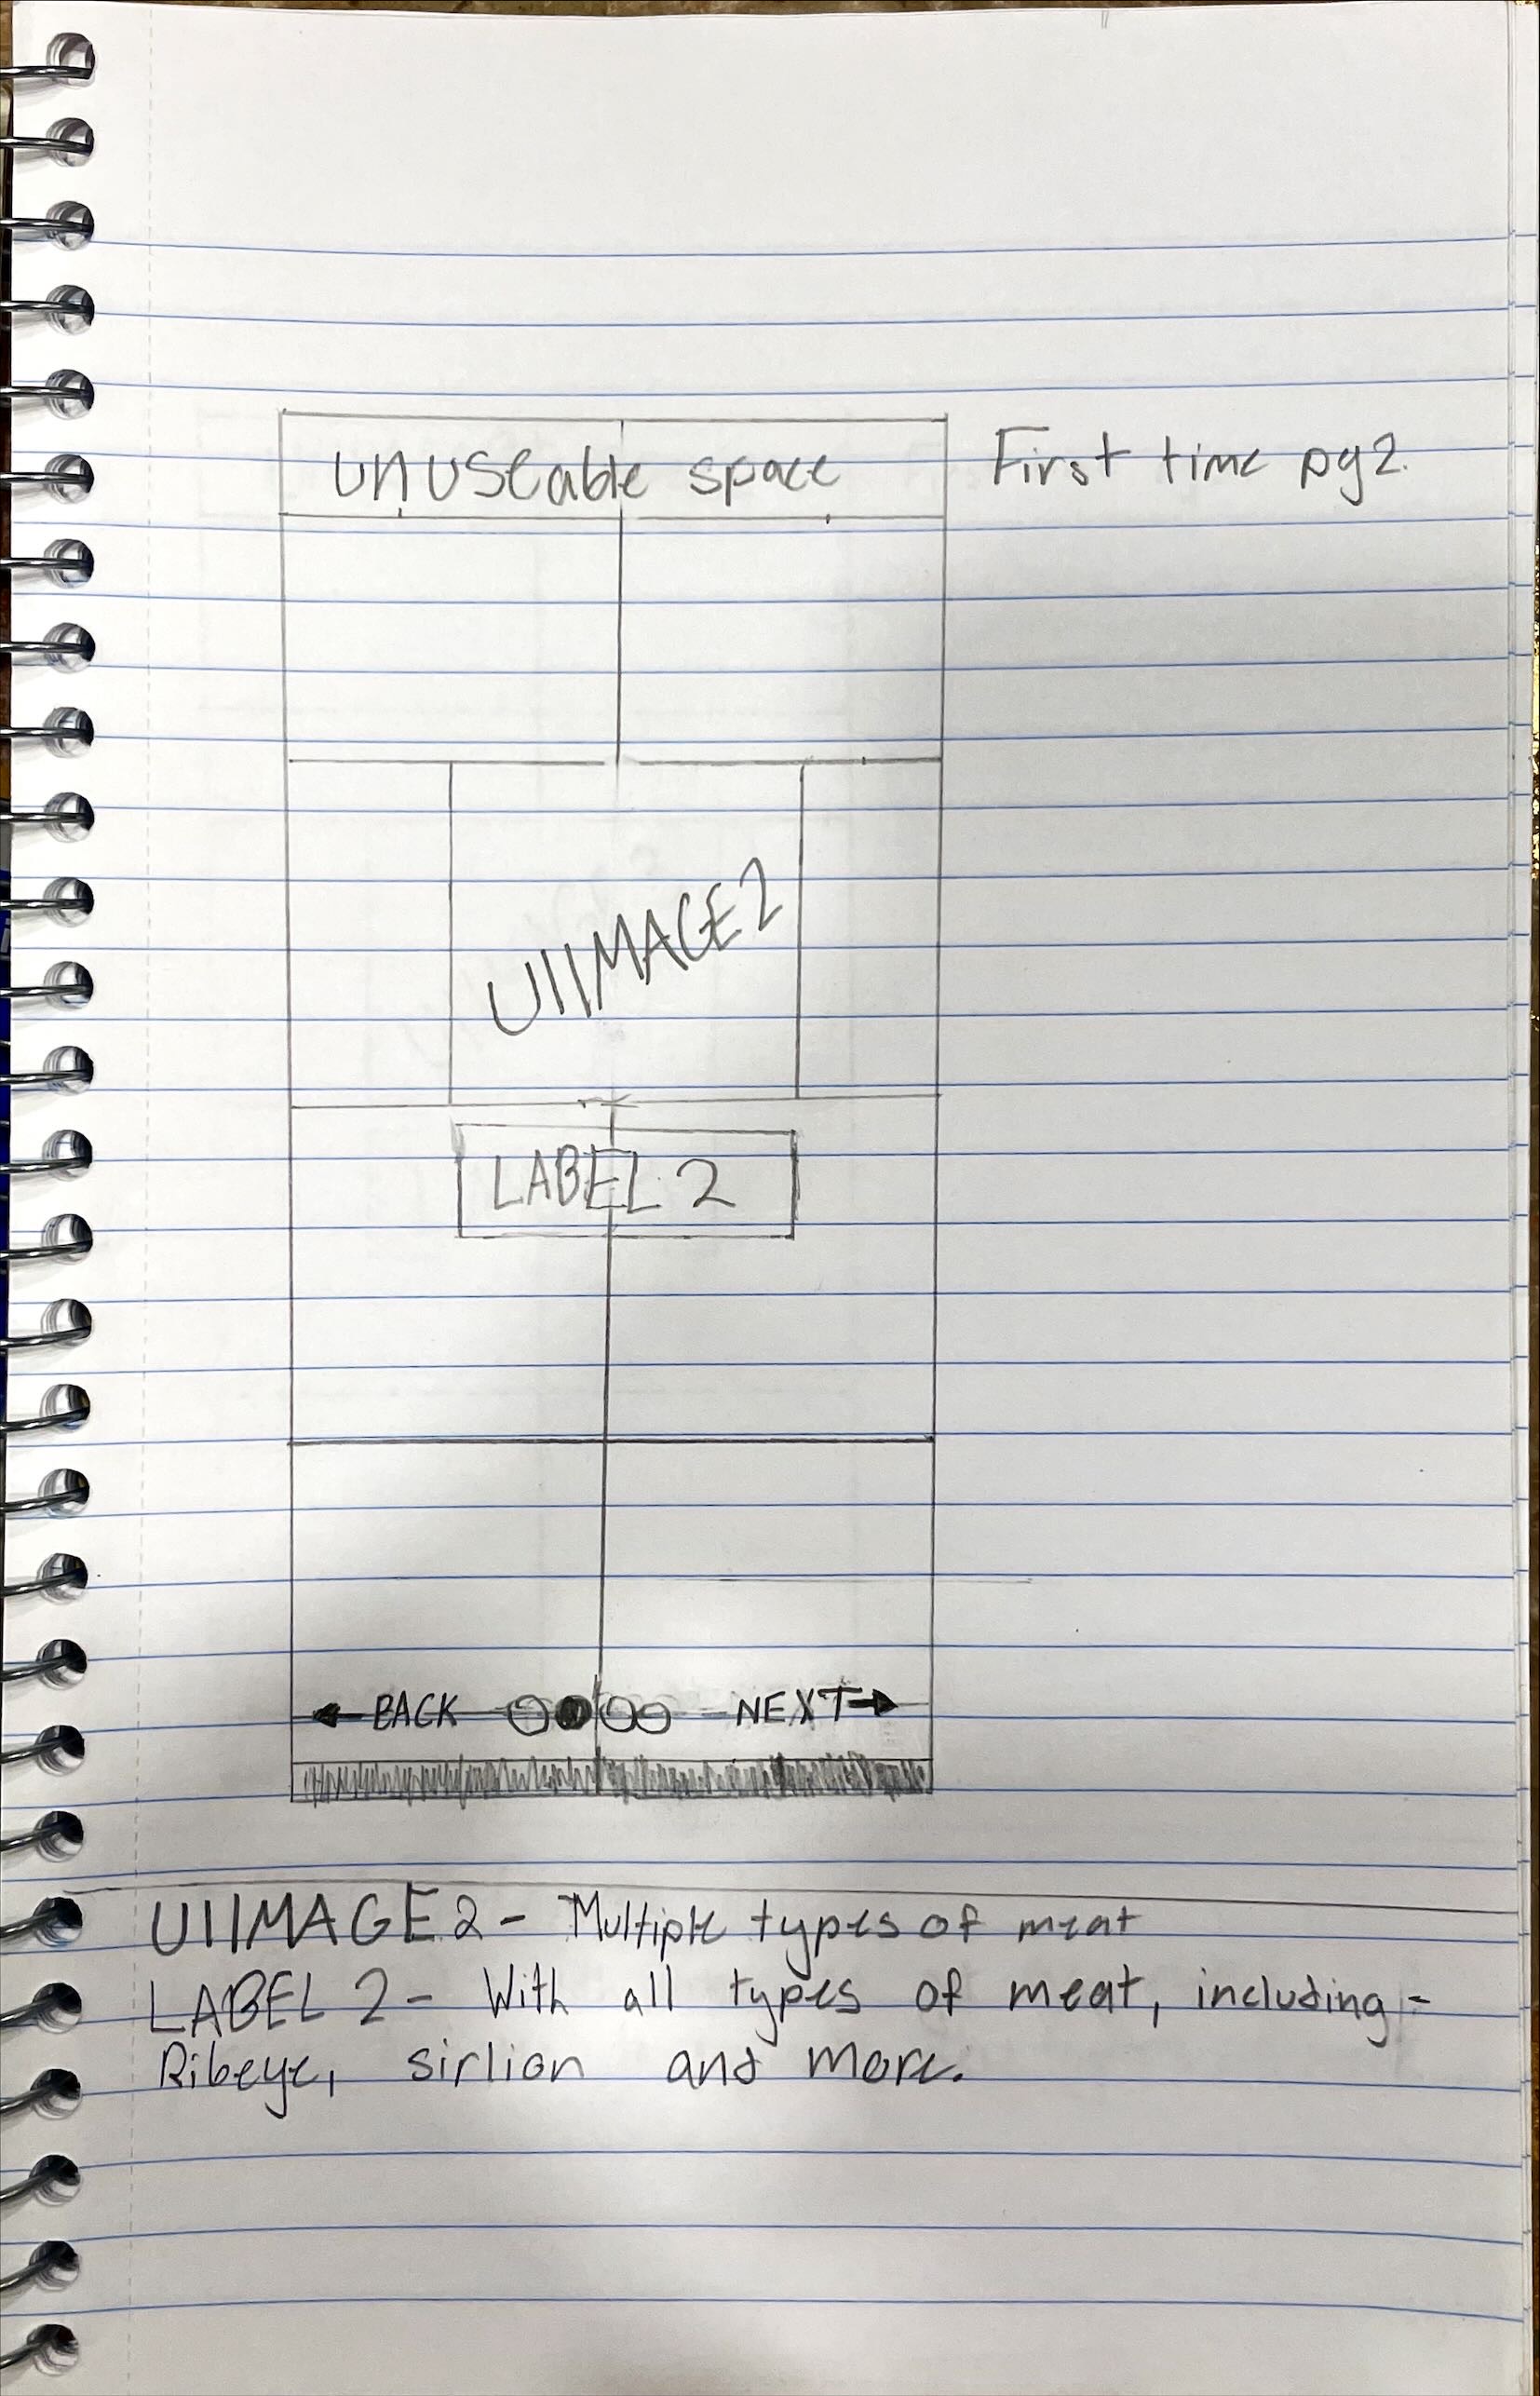 unuseable space
First time pg2.
UIIMAGE2
LABEL 2
BACK
NEXT
UIIMAGE2 - Multiple types of meat
LABEL 2 - With all types of meat, including -
Ribeye, sirlion and more.